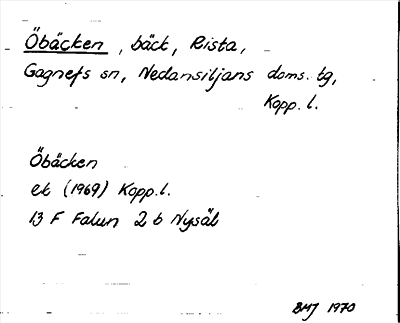 Öbäcken, bäck, Rista,
Gagnefs sn, Nedansiljans doms. tg,
Kopp. l.
Öbäcken
ek (1969) Kopp. l.
13 F Falun 2 b Nysäl
BMJ 1970